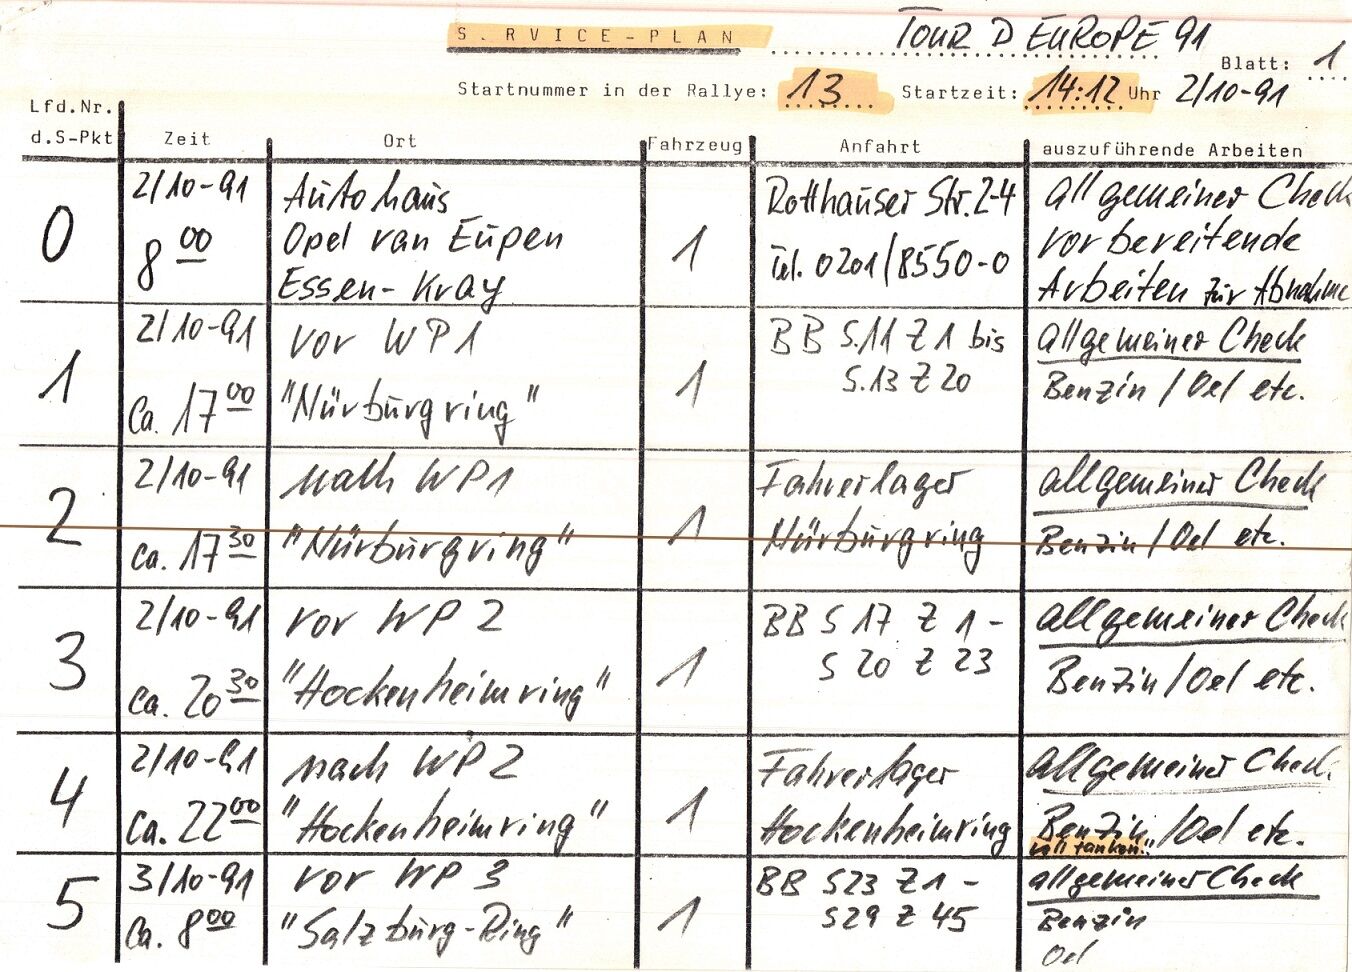 S.RVICE-PLAN TOUR D EUROPE 91
Blatt: 1
Startnummer in der Rallye: 13 Startzeit: 14:12 Uhr 2/10-91
Lfd.Nr.
d.S-Pkt Zeit Ort Fahrzeug Anfahrt auszuführende Arbeiten
0 2/10-91 Autohaus 1 Rotthauser Str. 2-4 allgemeiner Check
8 00 Opel van Eupen Tel. 0201/8550-0 vorbereitende
Essen-Kray Arbeiten für Abnahme
1 2/10-91 vor WP1 1 BB S.11 Z 1 bis allgemeiner Check
ca. 17 00 "Nürburgring" S.13 Z 20 Benzin / Oel etc.
2 2/10-91 nach WP1 1 Fahrerlager allgemeiner Check
ca. 17 30 "Nürburgring" Nürburgring Benzin / Oel etc.
3 2/10-91 vor WP 2 1 BB S 17 Z 1 - allgemeiner Check
ca. 20 30 "Hockenheimring" S 20 Z 23 Benzin / Oel etc.
4 2/10-91 nach WP 2 1 Fahrerlager allgemeiner Check
ca. 22 00 "Hockenheimring" Hockenheimring Benzin / Oel etc.
voll tanken!!
5 3/10-91 vor WP 3 1 BB S23 Z1 - allgemeiner Check
ca. 8 00 "Salzburg-Ring" S29 Z 45 Benzin
Oel